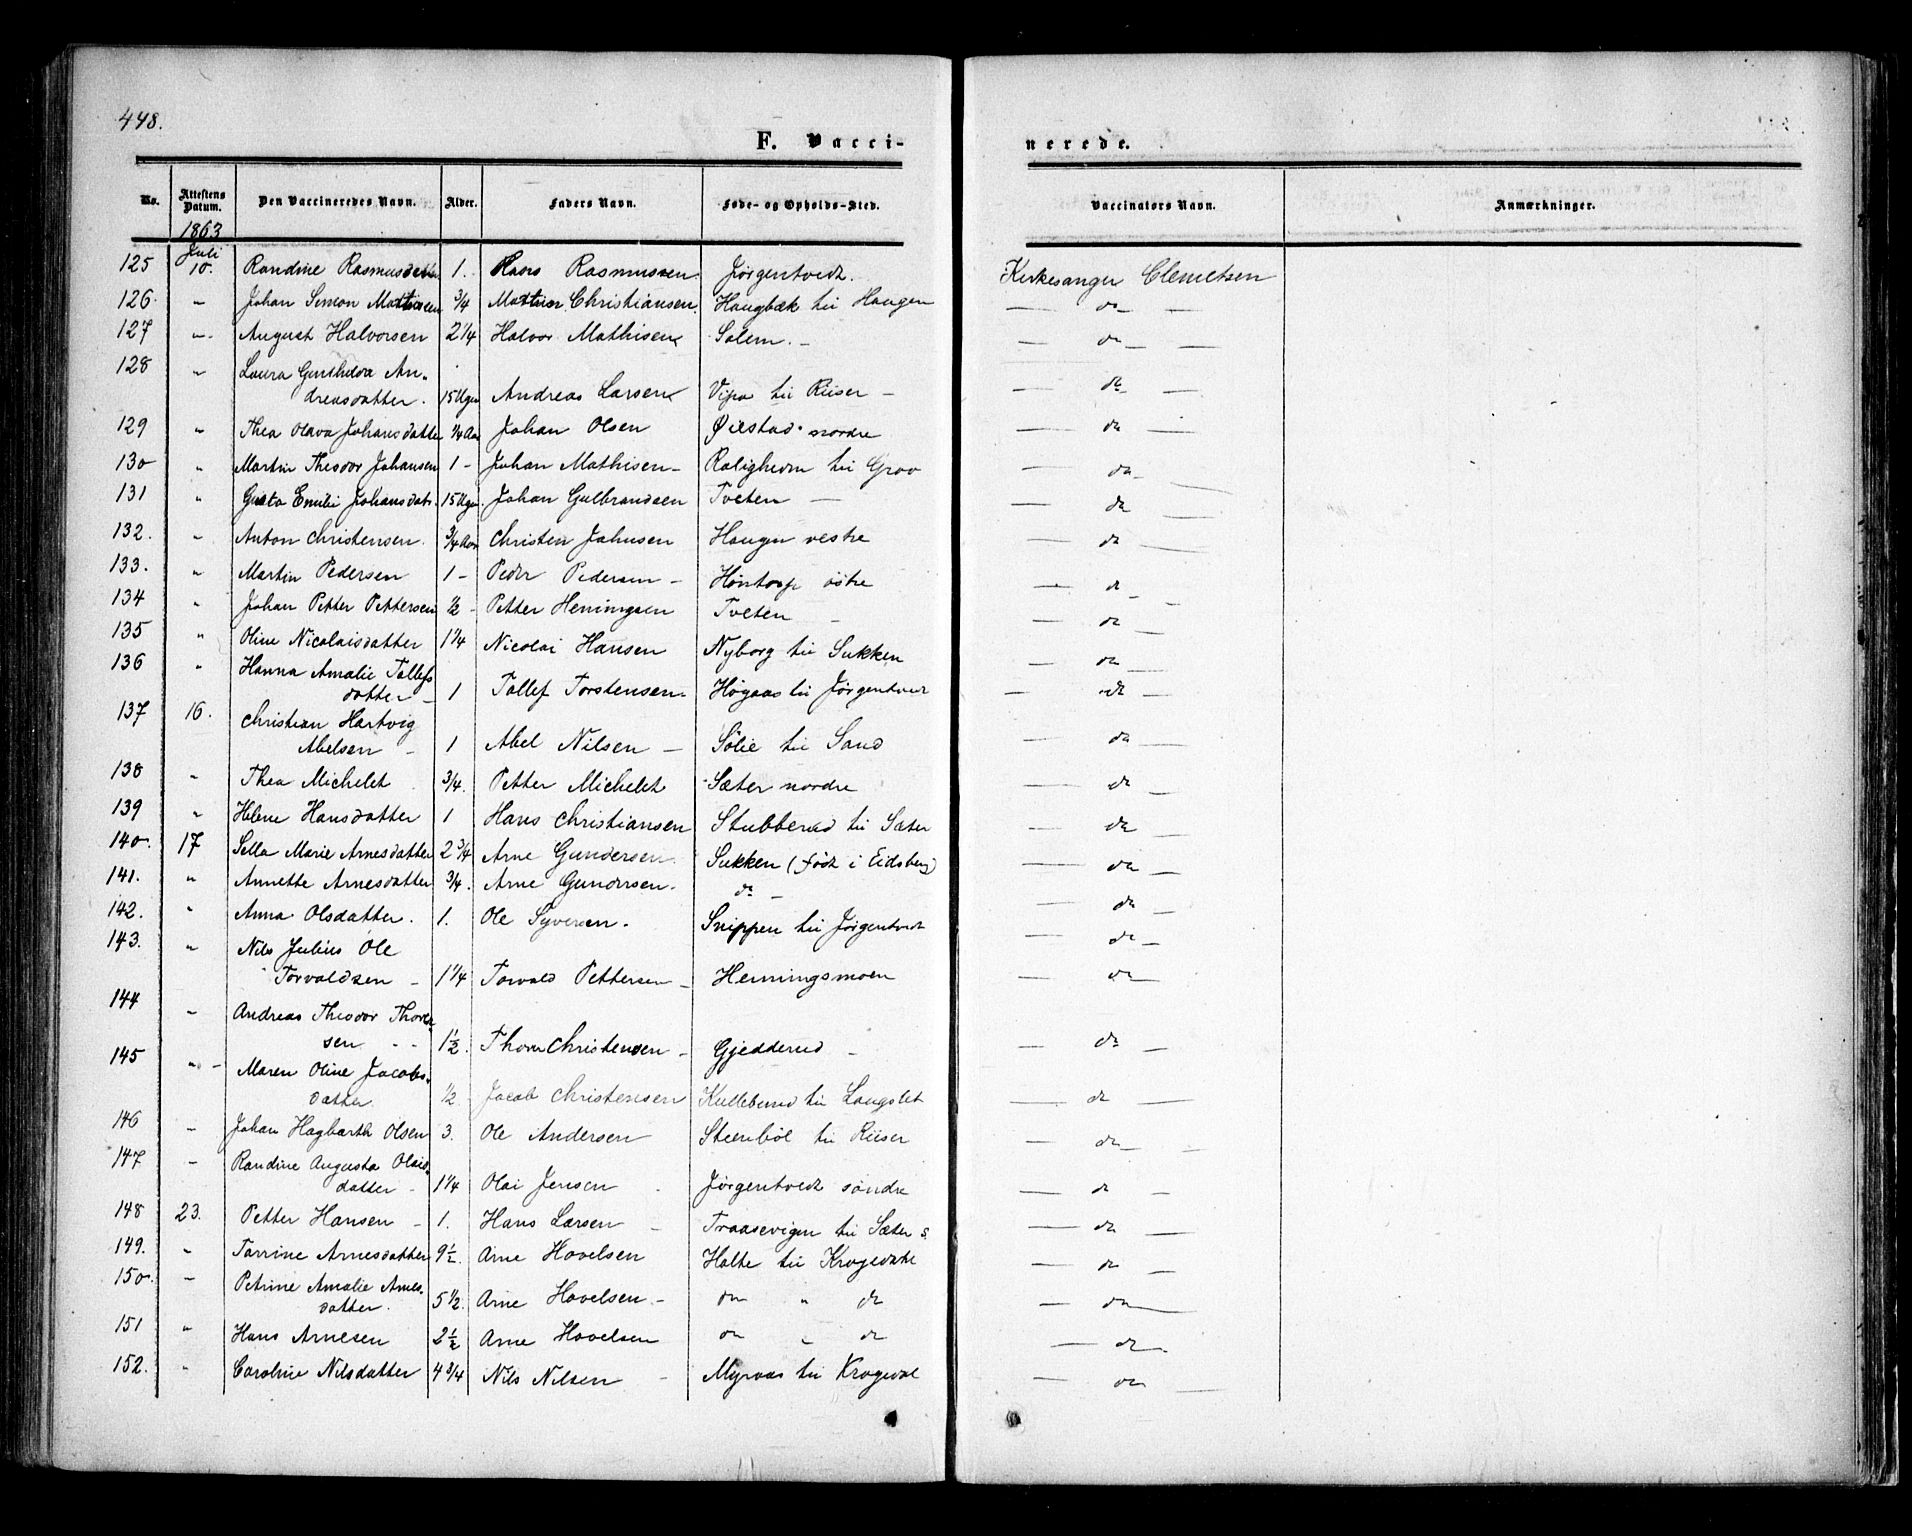 448.
F. Vacci-
nerede.
No. Attestens Datum. Den Vaccineredes Navn. Alder. Faders Navn. Føde- og Opholds-Sted. Vaccinators Navn. Anmærkninger.
1863
125 Juli 10. Randine Rasmusdatter 1. Hans Rasmussen Jørgentvedt. Kirkesanger Clemetsen
126. " Johan Simon Mathisen 3/4 Mathias Christiansen. Haugbæk til Haugen — do —
127 " August Halvorsen 2 1/4 Halvor Mathisen Solem. — — do —
128 " Laura Gunhilda An-
dreasdatter. 15 Uger Andreas Larsen Vipa til Riiser — — do —
129 " Thea Olava Johansdatter 1/4 Aar Johan Olsen Ørstad nordre — do —
130 " Martin Theodor Johansen 1 — Johan Mathisen — Roligheden til Grav — do —
131 " Emilie Johansdatr. 15 Uger. Johan Gulbrandsen Tveten — — do —
132. " Anton Christensen. 3/4 Aar Christen Johnsen Haugen vestre — do —
133. " Martin Pedersen 1 — Peder Pedersen — Høntorp østre — do —
134 " Johan Petter Pettersen 1/2 — Petter Henningsen Tveten — — do —
135 " Oline Nicolaisdatter 1 1/4 Nicolai Hansen Nyborg til Sukken — do —
136 " Hanna Amalie Tollefs
datter — 1 Tollef Torstensen. Høgaas til Jørgentvedt — do —
137 16. Christian Hartvig
Abelsen — 1 Abel Nilsen — Sølie til Sand — do —
138 " Thea Michelet 3/4. Petter Michelet Sæter nordre — do —
139 " Helene Hansdatter 1 Hans Christiansen Stubberud til Sæter — do —
140. 17 Sella Marie Arnesdatter 2 3/4 Arne Gundersen. Sukken (født i Eidsberg) — do —
141. " Annette Arnesdatter 3/4. Arne Gundersen. do — — do —
142. " Anna Olsdatter. 1. Ole Syversen. Snippen til Jørgentvedt — do —
143. " Nils Julius Ole
Torvaldsen — 1 1/4 Torvald Pettersen — Henningsmoen — do —
144 " Andreas Theodor Thorer-
sen 1 1/2 Thorer Christensen — Gjedderud — — do —
145 " Maren Oline Jacobs-
datter. 1/2. Jacob Christensen Kullebund til Langslet — do —
146 " Johan Hagbarth Olsen 3. Ole Andersen Steenbøl til Riiser — do —
147 " Randine Augusta Olais-
datter — 1 1/4 Olai Jensen Jørgentvedt søndre — do —
148 23. Petter Hansen — 1. Hans Larsen — Traasevigen til Sæter s. — do —
149. " Torrine Arnesdatter 9 1/2. Arne Hovelsen Holte til Krogedahl — do —
150. " Petrine Amalie Arnes-
datter. 5 1/2. Arne Hovelsen — do " do — do —
151 " Hans Arnesen 2 1/2 Arne Hovelsen do " do — do —
152. " Caroline Nilsdatter 4 3/4 Nils Nilsen — Myraas til Krogedal — do —